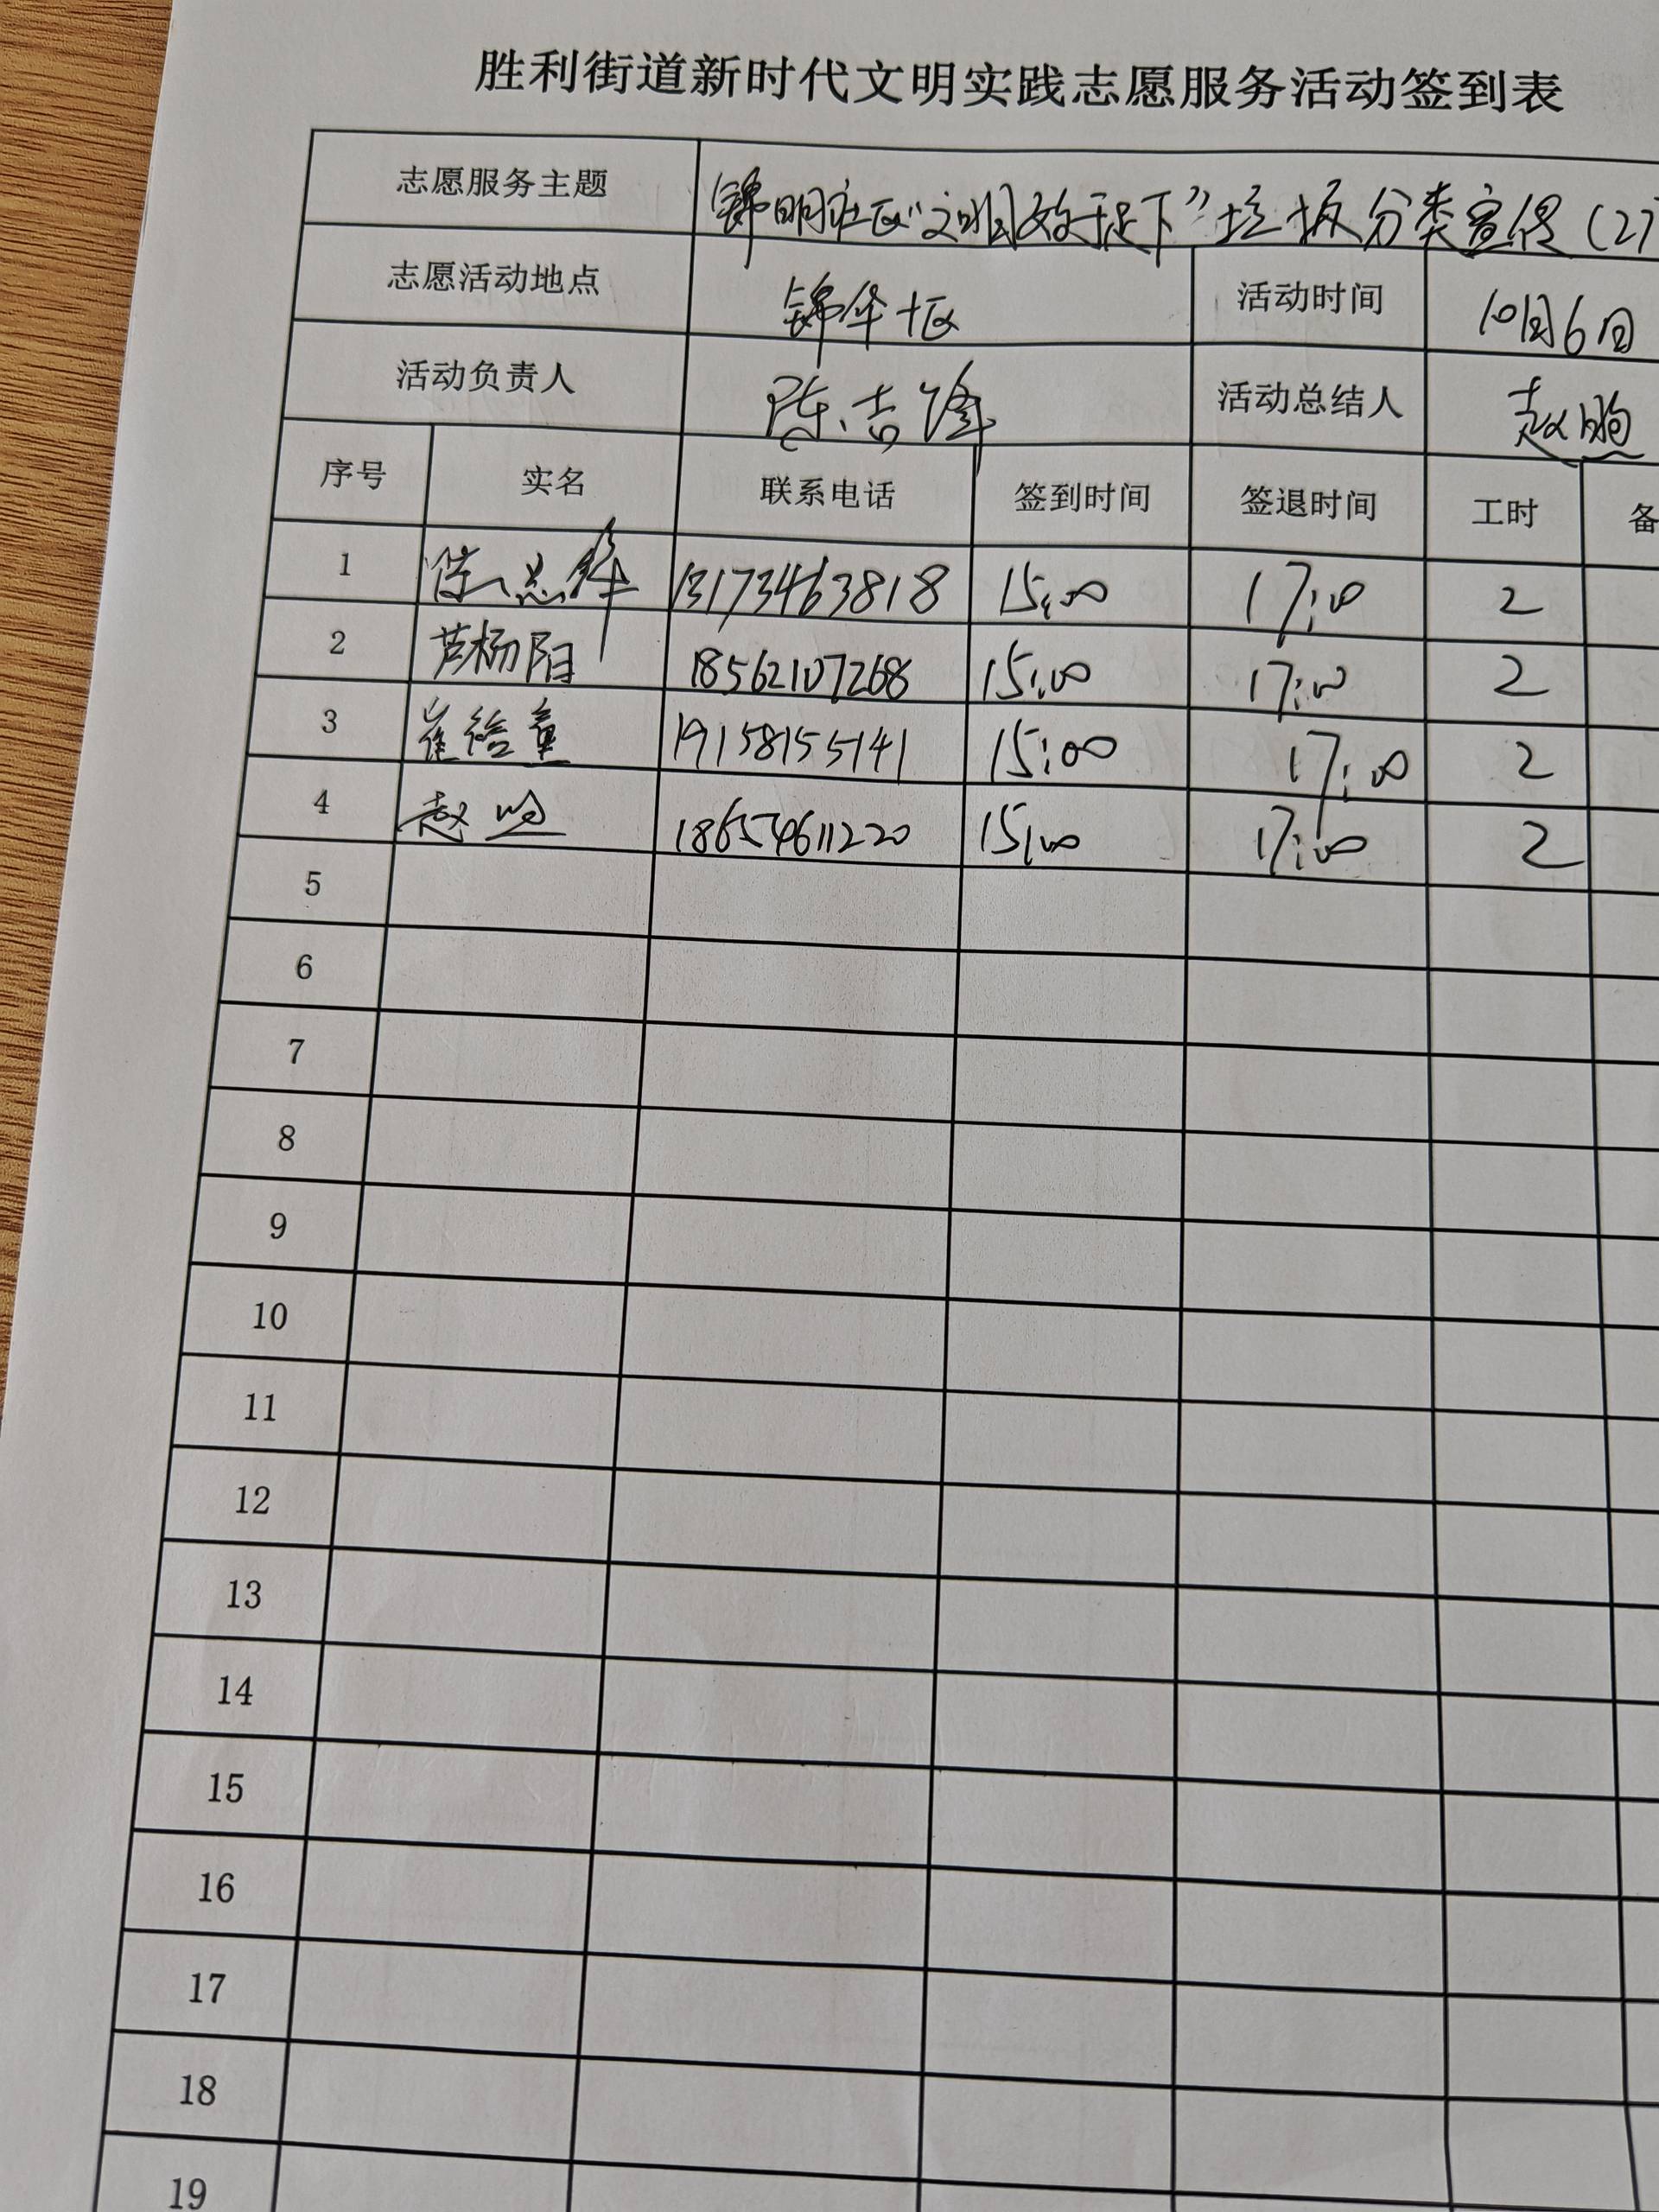 胜利街道新时代文明实践志愿服务活动签到表
志愿服务主题 锦明社区“文明实践足下”垃圾分类宣传(27
志愿活动地点 锦华十区 活动时间 10月6日
活动负责人 陈志峰 活动总结人 赵
序号 实名 联系电话 签到时间 签退时间 工时 备
1 陈志 13173463818 15:00 17:00 2
2 芦杨阳 18562107268 15:00 17:00 2
3 崔 童 19158155141 15:00 17:00 2
4 赵 18654611220 15:00 17:00 2
5
6
7
8
9
10
11
12
13
14
15
16
17
18
19